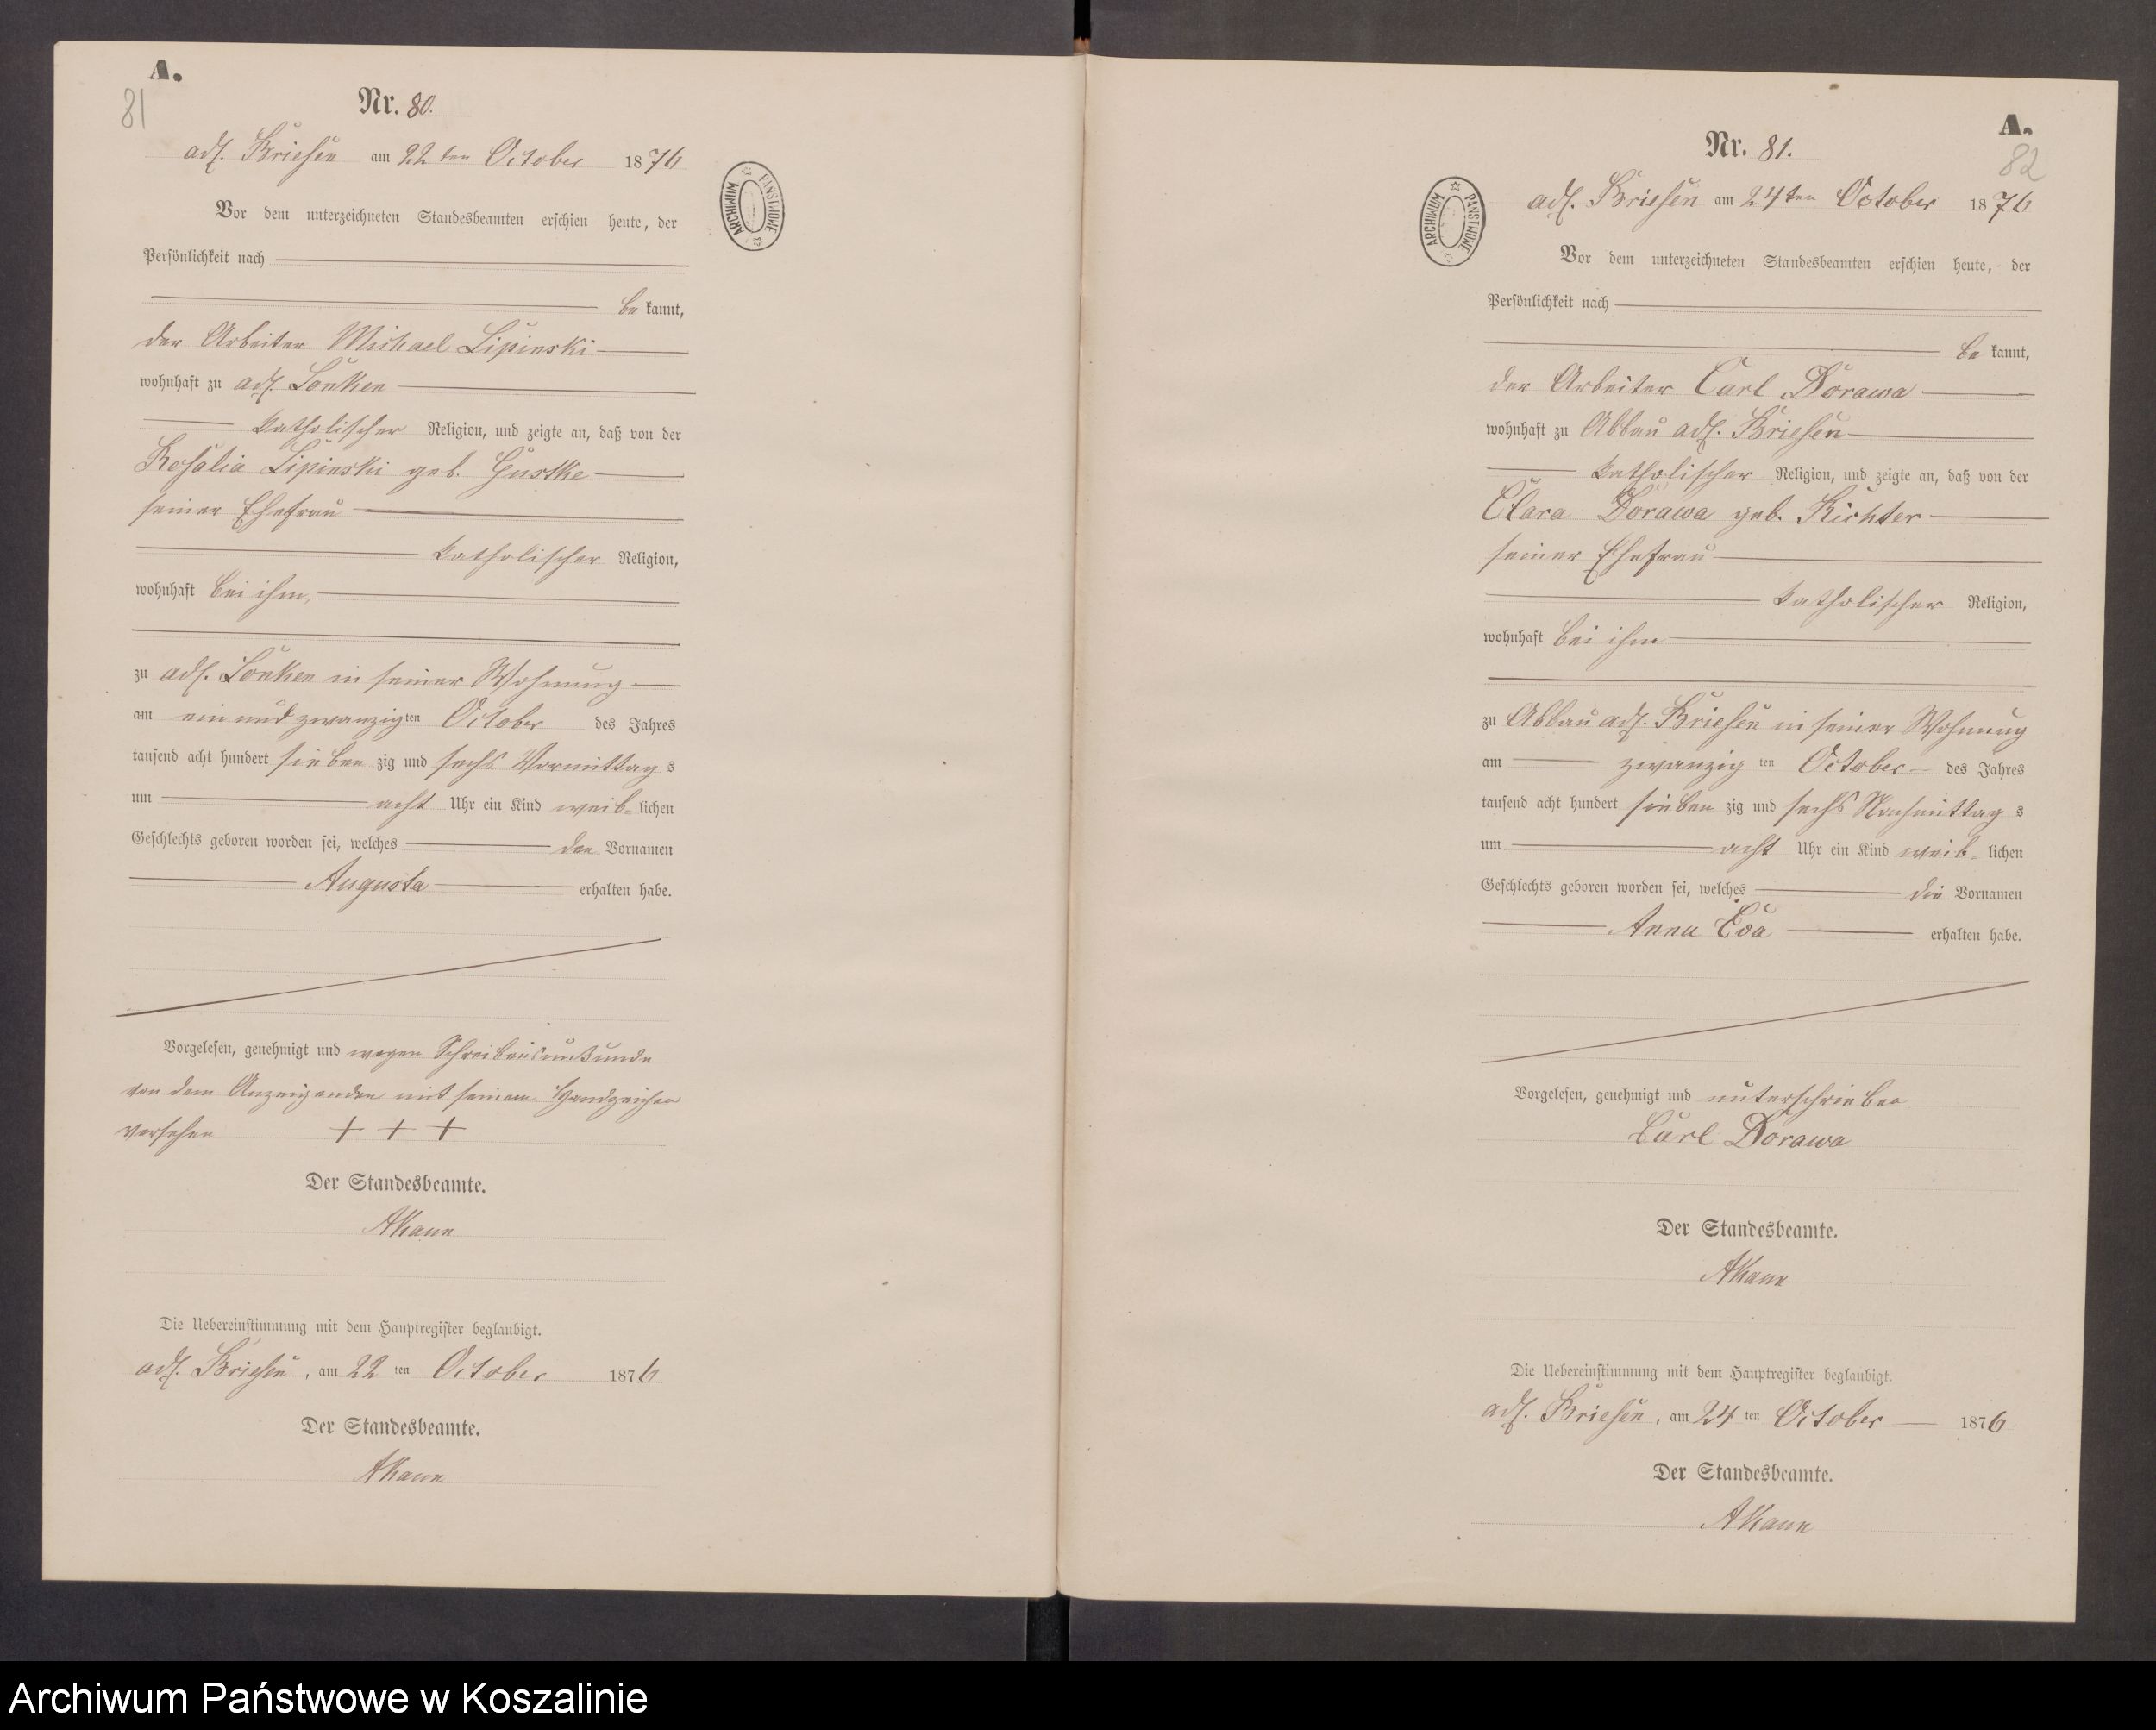 A.
81
Nr. 80.
adl. Briesen am 22ten October 1876
Vor dem unterzeichneten Standesbeamten erschien heute, der
Persönlichkeit nach
be kannt,
der Arbeiter Michael Lipinski
wohnhaft zu adl. Lonken
katholischer Religion, und zeigte an, daß von der
Rosalia Lipinski geb. Gustke
seiner Ehefrau
katholischer Religion,
wohnhaft bei ihm,
zu adl. Lonken in seiner Wohnung
am ein und zwanzigten October des Jahres
tausend acht hundert sieben zig und sechs Vormittag s
um acht Uhr ein Kind weib- lichen
Geschlechts geboren worden sei, welches den Vornamen
Augusta erhalten habe.
Vorgelesen, genehmigt und wegen Schreibensunkunde
von dem Anzeigenden mit seinem Handzeichen
versehen + + +
Der Standesbeamte.
Die Uebereinstimmung mit dem Hauptregister beglaubigt.
adl. Briesen, am 22 ten October 1876
Der Standesbeamte.
ARCHIWUM PAŃSTWOWE
A.
82
Nr. 81.
adl. Briesen am 24ten October 1876
ARCHIWUM PAŃSTWOWE
Vor dem unterzeichneten Standesbeamten erschien heute, der
Persönlichkeit nach
be kannt,
der Arbeiter Carl Dorawa
wohnhaft zu Abbau adl. Briesen
katholischer Religion, und zeigte an, daß von der
Clara Dorawa geb. Richter
seiner Ehefrau
katholischer Religion,
wohnhaft bei ihm
zu Abbau adl. Briesen in seiner Wohnung
am zwanzig ten October des Jahres
tausend acht hundert sieben zig und sechs Nachmittag s
um acht Uhr ein Kind weib- lichen
Geschlechts geboren worden sei, welches die Vornamen
Anna Eva erhalten habe.
Vorgelesen, genehmigt und unterschrieben
Carl Dorawa
Der Standesbeamte.
Die Uebereinstimmung mit dem Hauptregister beglaubigt.
adl. Briesen, am 24 ten October 1876
Der Standesbeamte.
Archiwum Państwowe w Koszalinie